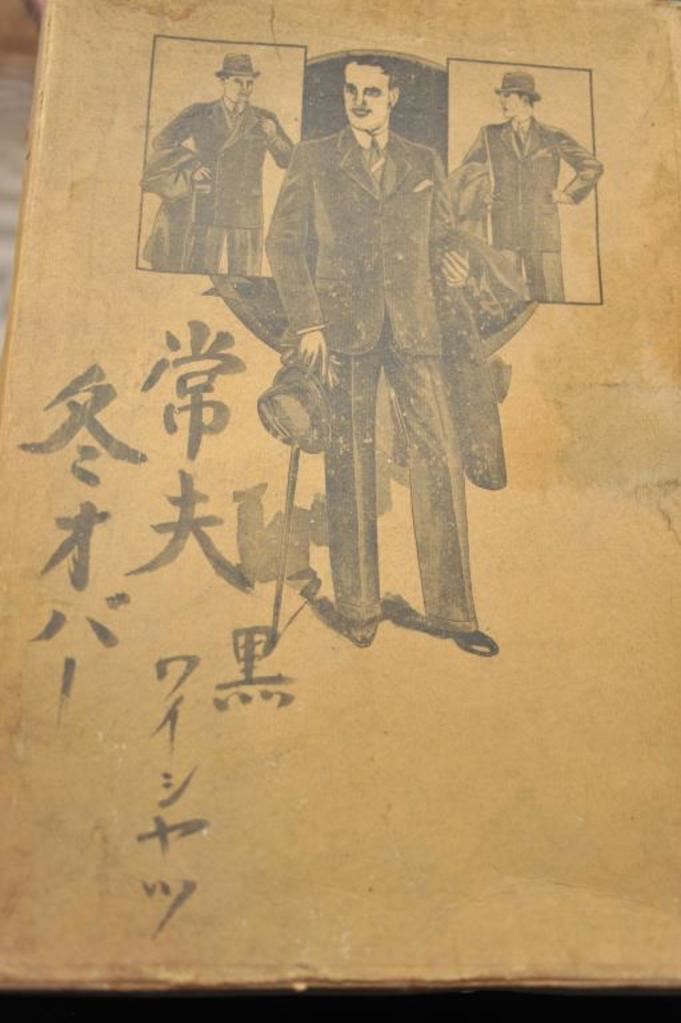 黒
常夫
ワイシャツ
冬オバー